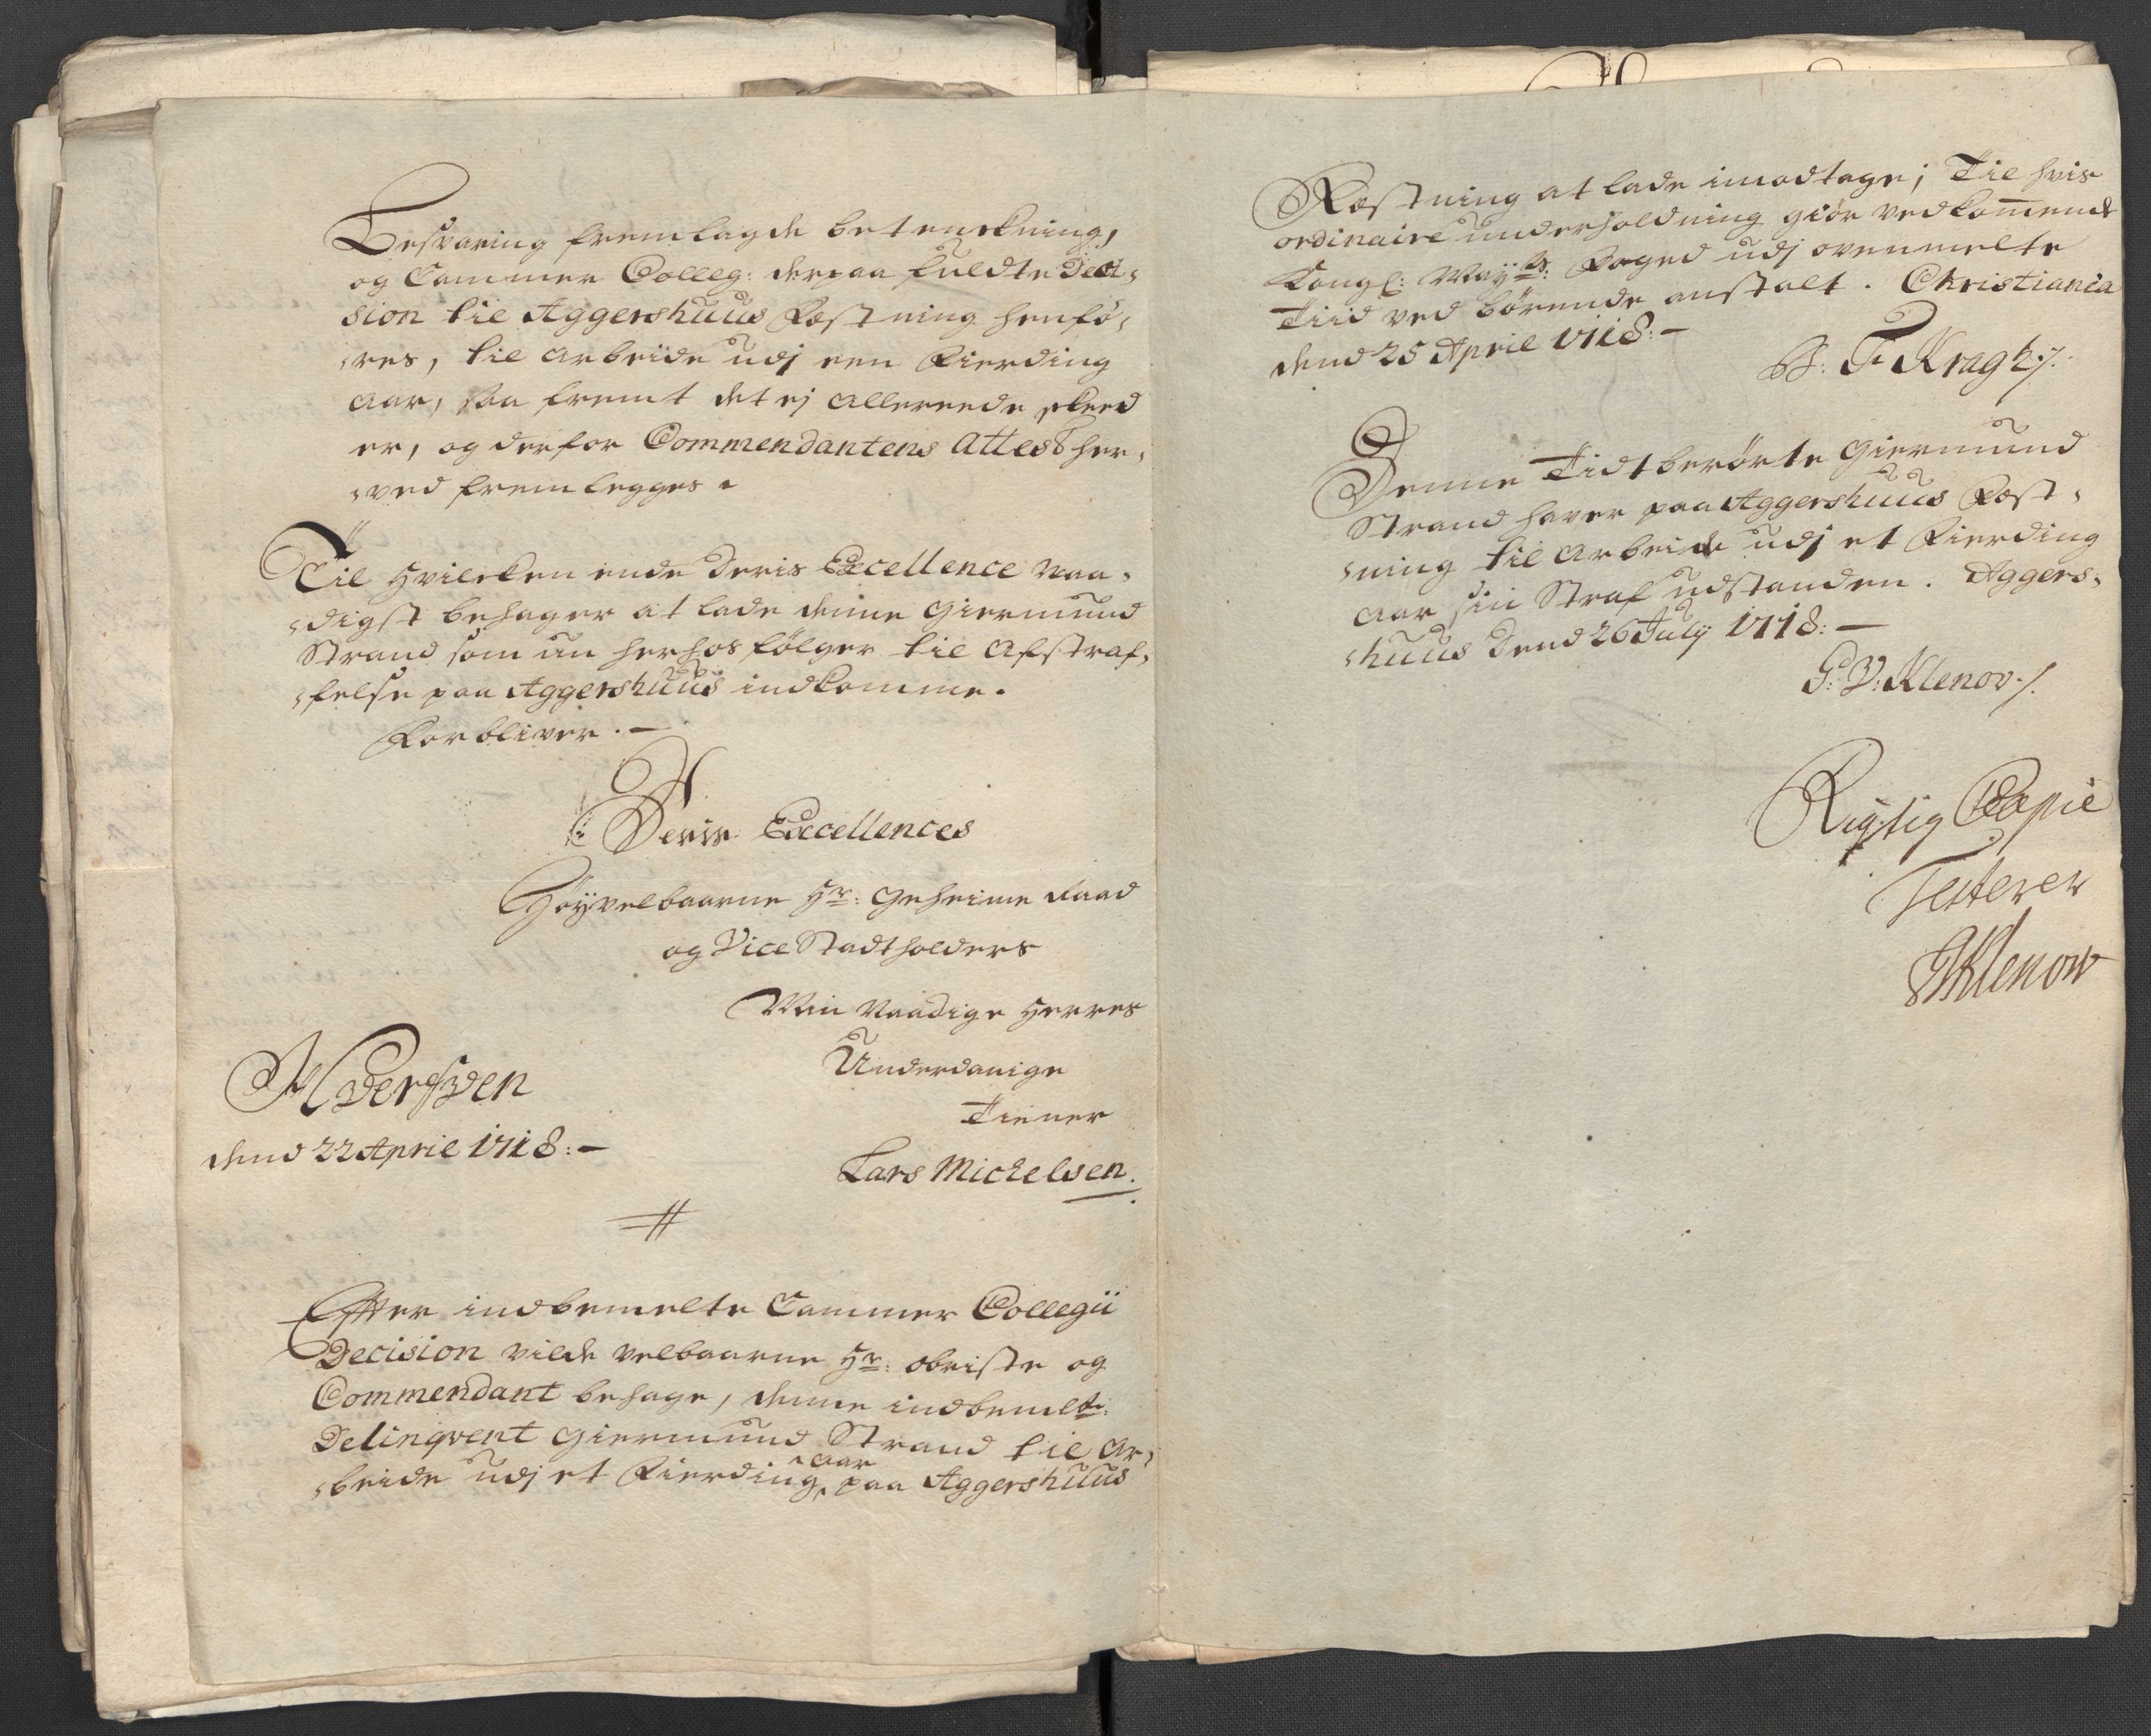 Besvaring fremlagde betenckning,
og Cammer Colleg: derpaa fuldte Deci-
sion til Aggershuus Fæstning henfø-
res, til arbeide udj een Fierding
aar, saa fremt det ej allereede skeed
er, og derfor Commendantens Attest her-
ved fremlegges.
Til Hvilcken ende Deris Excellence naa-
digst behager at lade denne Giermund
Strand som nu herhos følger til Afstraf-
felse paa Aggershuus indkomme.
Forbliver. —
Deris Excellences
Høyvelbaarne Hr: Geheime Raad
og Vice Stadtholders
Min Naadige Herres
Underdanige
Tiener
Lars Michelsen.
dend 22 April 1718: —
Efter indbemelte Cammer Collegii
Decision vilde velbaarne Hr: obriste og
Commendant behage, denne indbemelte
Delinqvent Giermund Strand til Ar-
beide udj et Fierding aar paa Aggershuus
Fæstning at lade imodtage; Til hvis
ordinaire underholdning giør vedkom̅ende
Kongl: May:ts: Foged udj ovenmelte
Tiid ved børende anstalt. Christiania
dend 25 April 1718: —
F Kragh ./.
Denne Tidtberørte Giermund
Strand haver paa Aggershuus Fæst-
ning til Arbeide udj et Fierding
Aar sin Straf udstanden. Aggers-
huus dend 26 July 1718: —
G: V: Klenov ./.
Rigtig Copie
Testerer
GVKlenow